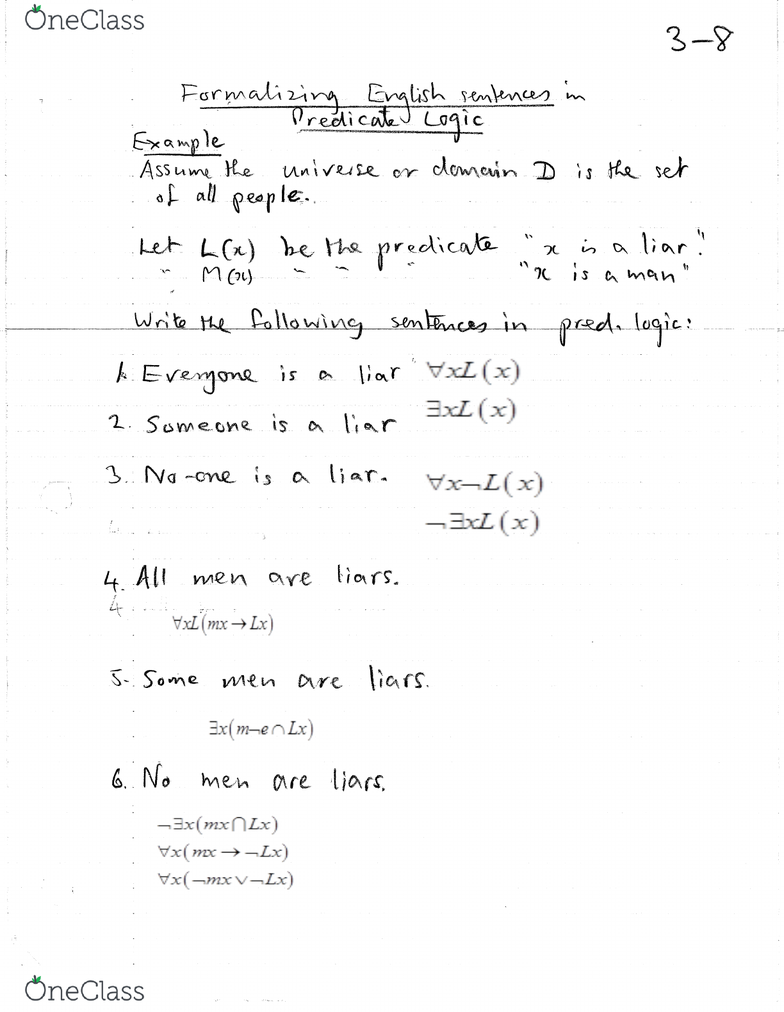 OneClass
3-8
Formalizing English sentences in
Predicate Logic
Example
Assume the universe or domain D is the set
of all people.
Let L(x) be the predicate "x is a liar."
" M(x) " " " "x is a man"
Write the following sentences in pred. logic:
1. Everyone is a liar ∀xL(x)
2. Someone is a liar ∃xL(x)
3. No-one is a liar. ∀x¬L(x)
¬∃xL(x)
4. All men are liars.
4
∀xL(mx→Lx)
5. Some men are liars.
∃x(m¬e∩Lx)
6. No men are liars.
¬∃x(mx∩Lx)
∀x(mx→¬Lx)
∀x(¬mx∨¬Lx)
OneClass